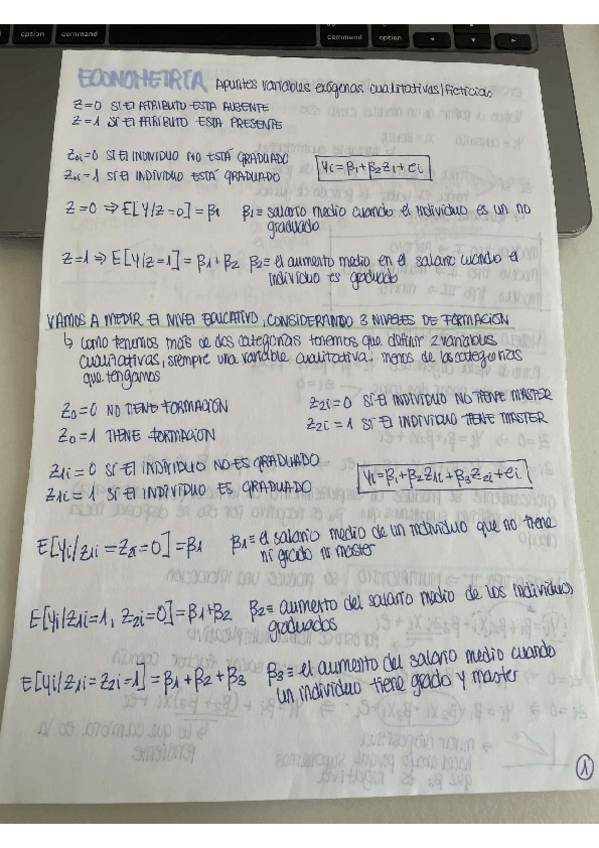 option command command option
ECONOMETRÍA Apuntes variables exógenas cualitativas/ficticias
Z=0 SI EL ATRIBUTO ESTÁ AUSENTE
Z=1 SI EL ATRIBUTO ESTÁ PRESENTE
Z0i=0 SI EL INDIVIDUO NO ESTÁ GRADUADO
Z0i=1 SI EL INDIVIDUO ESTÁ GRADUADO
Yi=β1+β2Z1+ei
Z=0 ⇒ E[Y/Z=0]=β1 β1≡ salario medio cuando el individuo es un no
graduado
Z=1 ⇒ E[Y/Z=1]=β1+β2 β2≡ el aumento medio en el salario cuando el
individuo es graduado
VAMOS A MEDIR EL NIVEL EDUCATIVO, CONSIDERANDO 3 NIVELES DE FORMACIÓN
↳ como tenemos más de dos categorías tenemos que definir 2 variables
cualitativas, siempre una variable cualitativa menos de las categorías
que tengamos
Z0=0 NO TIENE FORMACIÓN
Z0=1 TIENE FORMACIÓN
Z2i=0 SI EL INDIVIDUO NO TIENE MASTER
Z2i=1 SI EL INDIVIDUO TIENE MASTER
Z1i=0 SI EL INDIVIDUO NO ES GRADUADO
Z1i=1 SI EL INDIVIDUO ES GRADUADO
Yi=β1+β2Z1i+β3Z2i+ei
E[Yi/Z1i=Z2i=0]=β1 β1≡ el salario medio de un individuo que no tiene
ni grado ni master
E[Yi/Z1i=1, Z2i=0]=β1+β2 β2≡ aumento del salario medio de los individuos
graduados
E[Yi/Z1i=Z2i=1]=β1+β2+β3 β3≡ el aumento del salario medio cuando
un individuo tiene grado y master
1